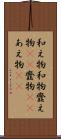 和え物和物韲え
物韲物
あえ物